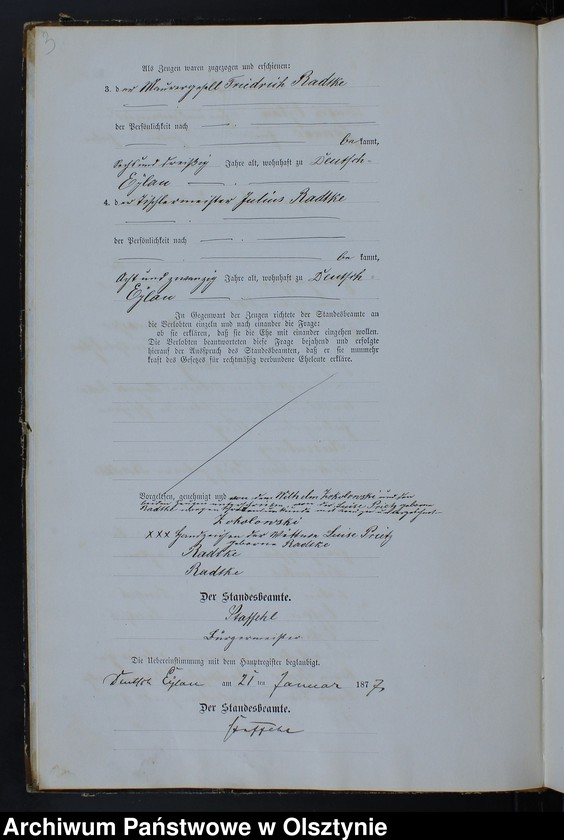 3
Als Zeugen waren zugezogen und erschienen:
3. der Maurergesell Friedrich Radtke
der Persönlichkeit nach
be kannt,
sechs und dreißig Jahre alt, wohnhaft zu Deutsch-
Eylau
4. der Tischlermeister Julius Radtke
der Persönlichkeit nach
be kannt,
acht und zwanzig Jahre alt, wohnhaft zu Deutsch-
Eylau
In Gegenwart der Zeugen richtete der Standesbeamte an
die Verlobten einzeln und nach einander die Frage:
ob sie erklären, daß sie die Ehe mit einander eingehen wollen.
Die Verlobten beantworteten diese Frage bejahend und erfolgte
hierauf der Ausspruch des Standesbeamten, daß er sie nunmehr
kraft des Gesetzes für rechtmäßig verbundene Eheleute erkläre.
Vorgelesen, genehmigt und von dem Wilhelm Zokolowski und den
beiden Zeugen unterschrieben, von der Luise Preitz geborne
Radtke wegen
Zokolowski
XXX Handzeichen der Wittwe Luise Preitz
geborne Radtke
Radtke
Radtke
Der Standesbeamte.
Staffehl
Bürgermeister
Die Uebereinstimmung mit dem Hauptregister beglaubigt.
Deutsch Eylau am 21 ten Januar 1877
Der Standesbeamte.
Staffehl
Archiwum Państwowe w Olsztynie